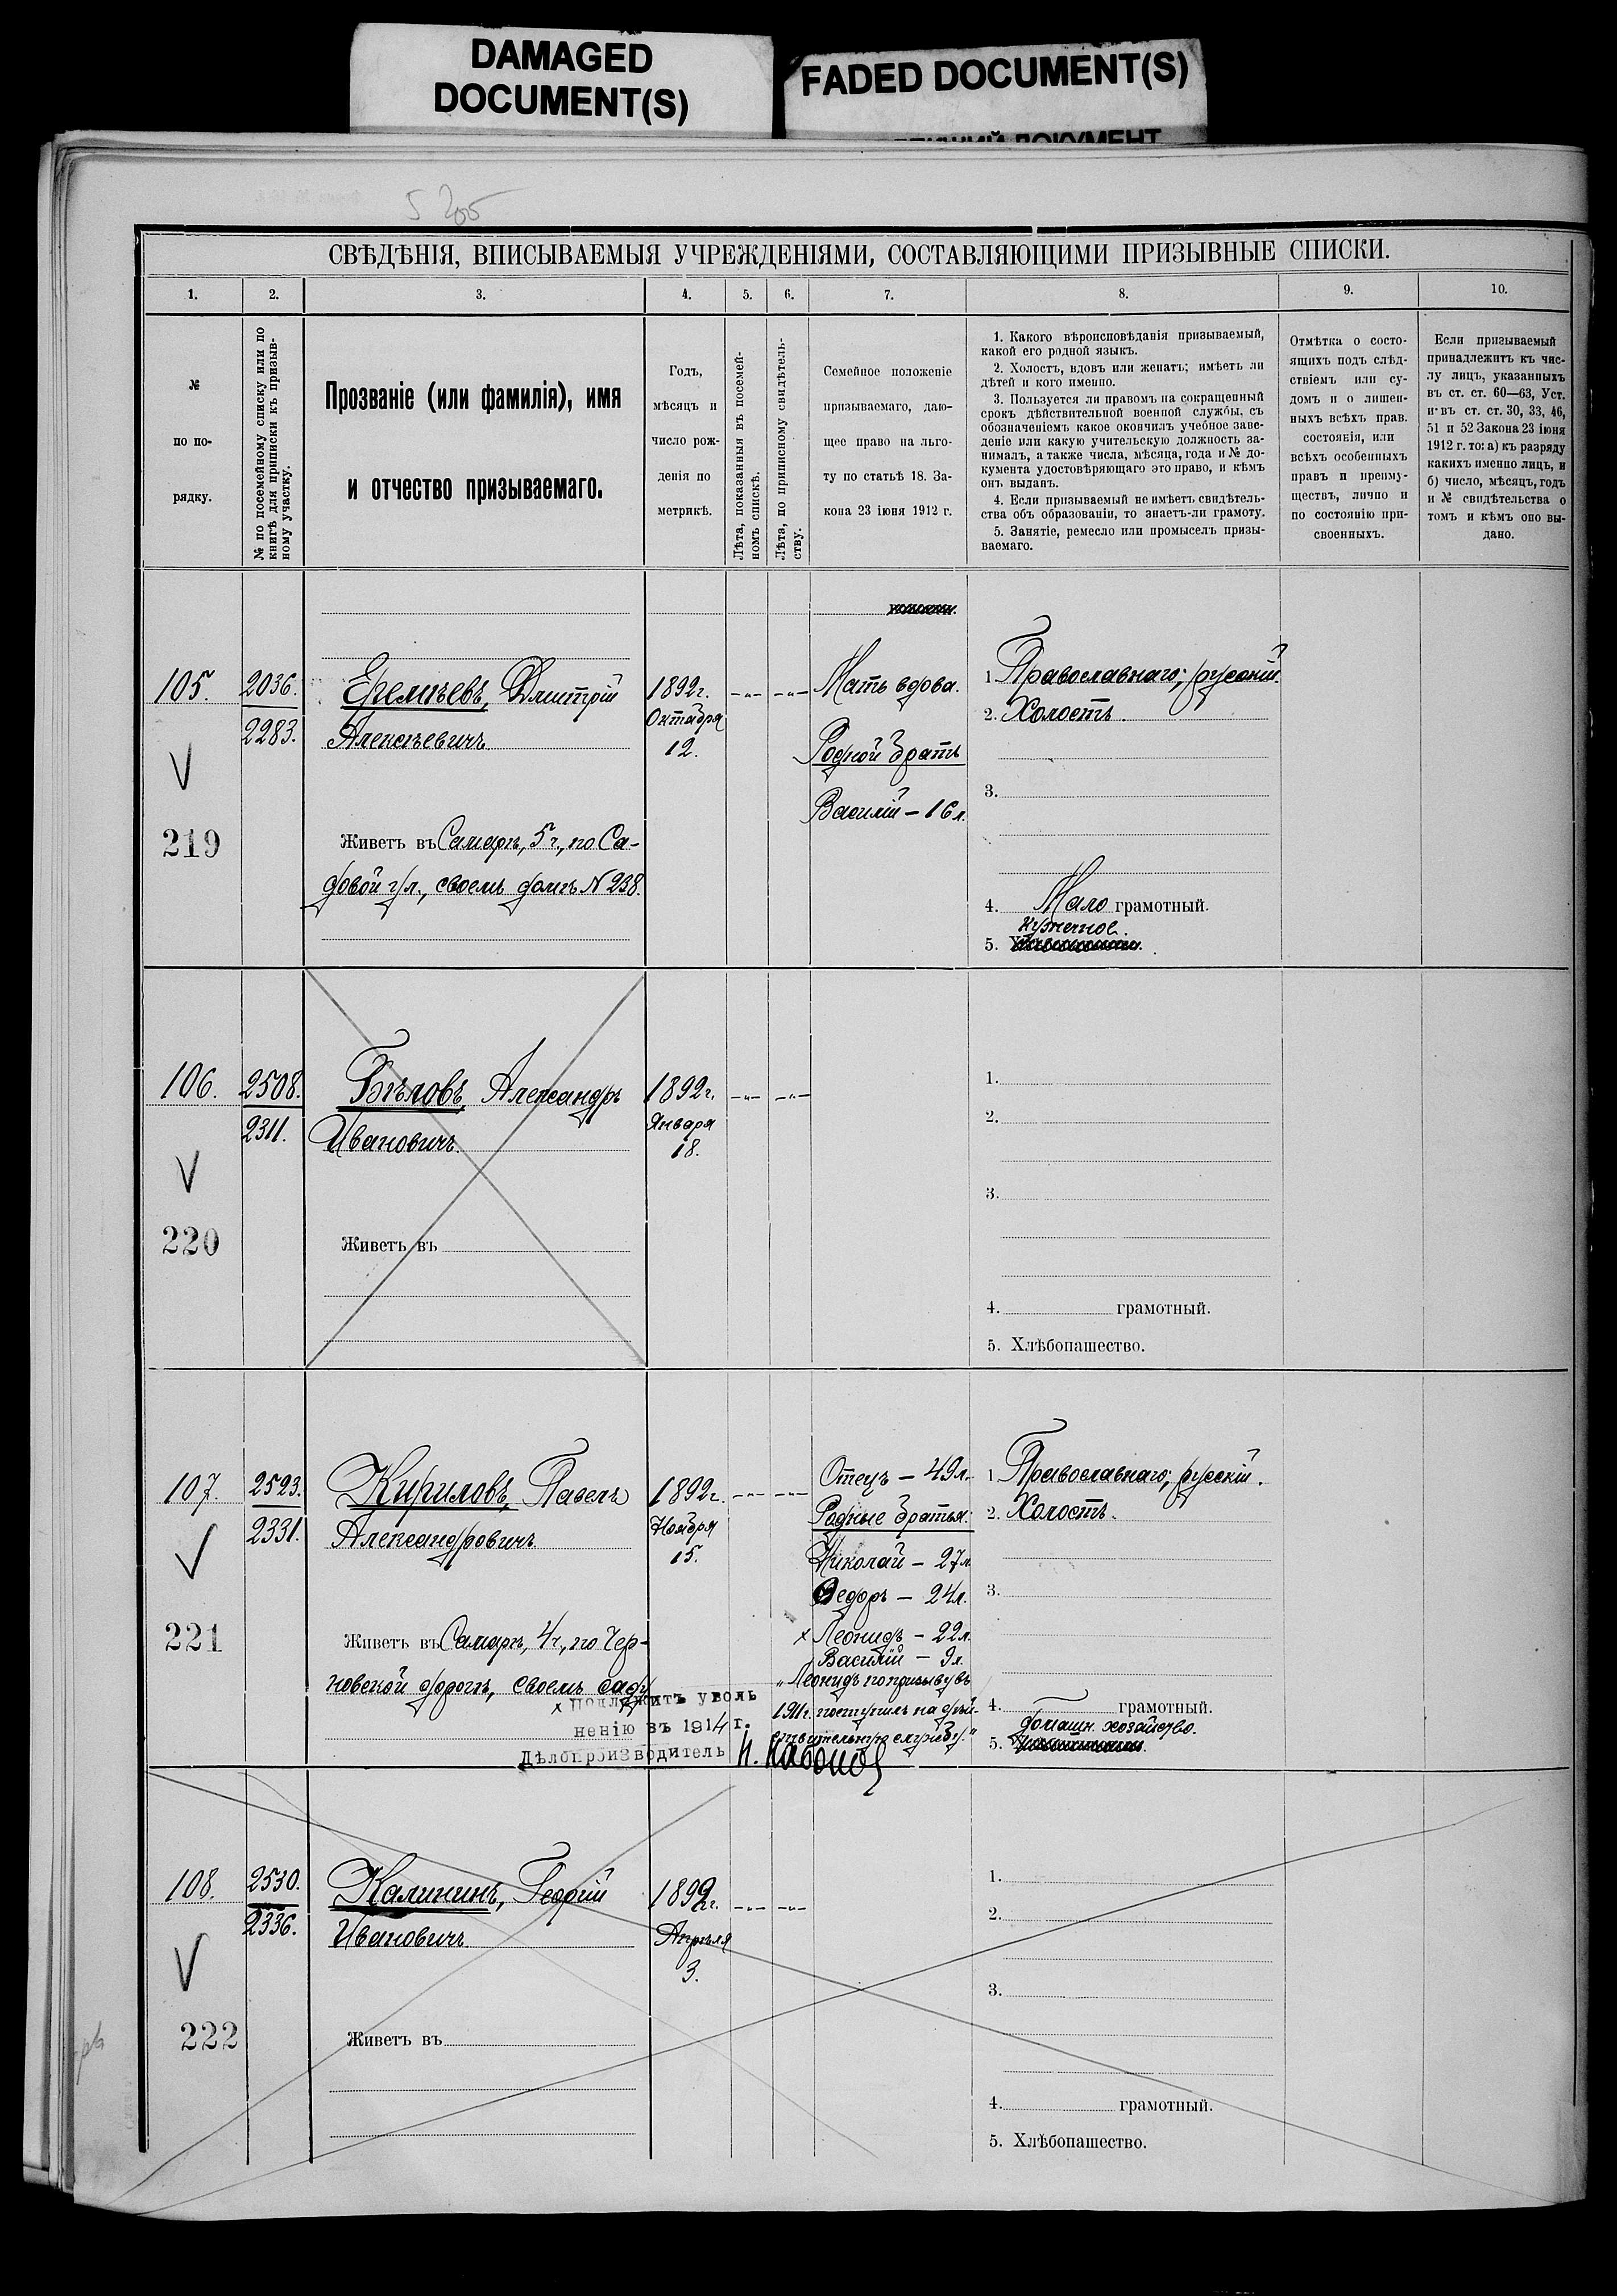 DAMAGED
DOCUMENT(S)
FADED DOCUMENT(S)
ДОКУМЕНТ
СВѢДѢНІЯ, ВПИСЫВАЕМЫЯ УЧРЕЖДЕНІЯМИ, СОСТАВЛЯЮЩИМИ ПРИЗЫВНЫЕ СПИСКИ.
1. 2. 3. 4. 5. 6. 7. 8. 9. 10.
№
по по-
рядку.
№ по посемейному списку или по
книгѣ для приписки къ призыв-
ному участку.
Прозваніе (или фамилія), имя
и отчество призываемаго.
Годъ,
мѣсяцъ и
число рож-
денія по
метрикѣ.
Лѣта, показанныя въ посемей-
номъ спискѣ.
Лѣта, по приписному свидѣтель-
ству.
Семейное положеніе
призываемаго, даю-
щее право на льго-
ту по статьѣ 18. За-
кона 23 іюня 1912 г.
1. Какого вѣроисповѣданія призываемый,
какой его родной языкъ.
2. Холостъ, вдовъ или женатъ; имѣетъ ли
дѣтей и кого именно.
3. Пользуется ли правомъ на сокращенный
срокъ дѣйствительной военной службы, съ
обозначеніемъ какое окончилъ учебное заве-
деніе или какую учительскую должность за-
нималъ, а также числа, мѣсяца, года и № до-
кумента удостовѣряющаго это право, и кѣмъ
онъ выданъ.
4. Если призываемый не имѣетъ свидѣтель-
ства объ образованіи, то знаетъ-ли грамоту.
5. Занятіе, ремесло или промыселъ призы-
ваемаго.
Отмѣтка о состо-
ящихъ подъ слѣд-
ствіемъ или су-
домъ и о лишен-
ныхъ всѣхъ прав.
состоянія, или
всѣхъ особенныхъ
правъ и преиму-
ществъ, лично и
по состоянію при-
своенныхъ.
Если призываемый
принадлежитъ къ чис-
лу лицъ, указанныхъ
въ ст. ст. 60—63, Уст.
и въ ст. ст. 30, 33, 46,
51 и 52 Закона 23 іюня
1912 г. то: а) къ разряду
какихъ именно лицъ, и
б) число, мѣсяцъ, годъ
и № свидѣтельства о
томъ и кѣмъ оно вы-
дано.
105. 2036. Еремѣевъ, Дмитрій 1892г. Мать вдова. 1 Православнаго; русскій.
2283. Алексѣевичъ Октября 2. Холостъ.
12. Родной братъ
3.
Василій — 16 л.
219 Живетъ въ Самарѣ, 5 ч., по Са-
довой ул., своемъ домѣ № 238.
4. Мало грамотный.
кузнечное.
5.
106. 2508. Бѣловъ, Александръ 1892г. 1.
2311. Ивановичъ Января 2.
18.
3.
220 Живетъ въ
4. грамотный.
5. Хлѣбопашество.
107. 2523. Кириловъ, Павелъ 1892г. Отецъ — 49 л. 1 Православнаго; русскій.
2331. Александровичъ Ноября Родные братья: 2. Холостъ.
15. Николай — 27 л.
Ѳедоръ — 24 л. 3.
221 Живетъ въ Самарѣ, 4 ч., по Чер- х Леонидъ — 22 л.
Василій — 9 л.
новской дорогѣ, своемъ саду „Леонидъ по призыву въ
х Подлежитъ уволь 1911г. поступилъ на дѣй- 4. грамотный.
нению въ 1914 г. ствительную службу." домашн. хозяйство.
Дѣлопроизводитель 5.
108. 2530. Калининъ, Георгій 1892г. 1.
2336. Ивановичъ Апрѣля 2.
3.
3.
222 Живетъ въ
4. грамотный.
5. Хлѣбопашество.